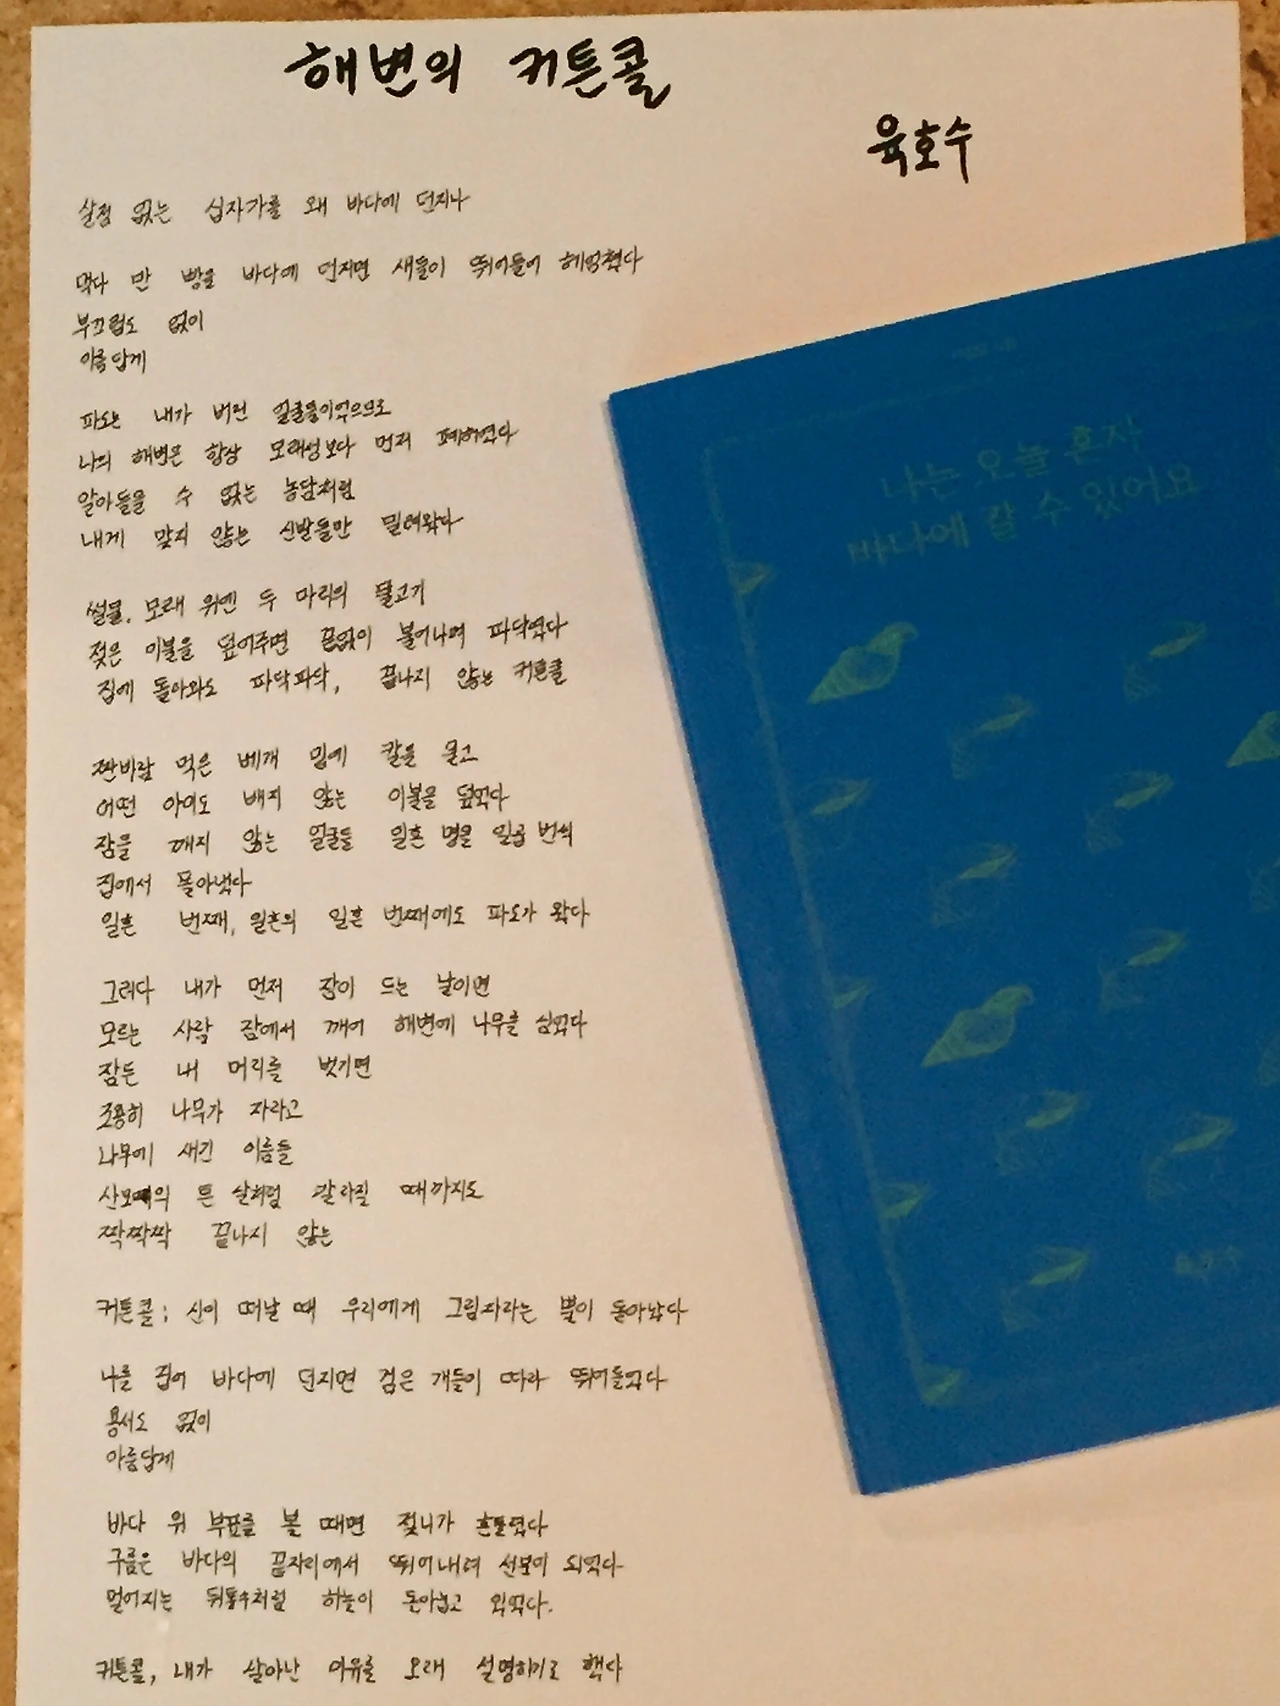 해변의 커튼콜
육호수
살점 없는 십자가를 왜 바다에 던지나
먹다 만 빵을 바다에 던지면 새들이 뛰어들어 헤엄쳤다
부끄럼도 없이
아름답게
파도는 내가 버린 얼굴들이었으므로
나의 해변은 항상 모래성보다 먼저 폐허였다
알아들을 수 없는 농담처럼
내게 맞지 않는 신발들만 밀려왔다
썰물, 모래 위엔 두 마리의 물고기
젖은 이불을 덮어주면 끝없이 불어나며 파닥였다
집에 돌아와도 파닥파닥, 끝나지 않는 커튼콜
짠바람 먹은 베개 밑에 칼을 묻고
어떤 아이도 배지 않는 이불을 덮었다
잠을 깨지 않는 얼굴들 일흔 명을 일곱 번씩
집에서 몰아냈다
일흔 번째, 일흔의 일흔 번째에도 파도가 왔다
그러다 내가 먼저 잠이 드는 날이면
모르는 사람 잠에서 깨어 해변에 나무를 심었다
잠든 내 머리를 벗기면
조용히 나무가 자라고
나무에 새긴 이름들
산모의 튼 살처럼 갈라질 때까지도
짝짝짝 끝나지 않는
커튼콜; 신이 떠날 때 우리에게 그림자라는 뿔이 돋아났다
나를 집어 바다에 던지면 검은 개들이 따라 뛰어들었다
용서도 없이
아름답게
바다 위 부표를 볼 때면 젖니가 흔들렸다
구름은 바다의 끝자리에서 뛰어내려 선분이 되었다
멀어지는 뒤통수처럼 하늘이 돋아났고 외웠다.
커튼콜, 내가 살아난 이유를 오래 설명하기로 했다
나는 오늘 혼자
바다에 갈 수 있어요
육호수